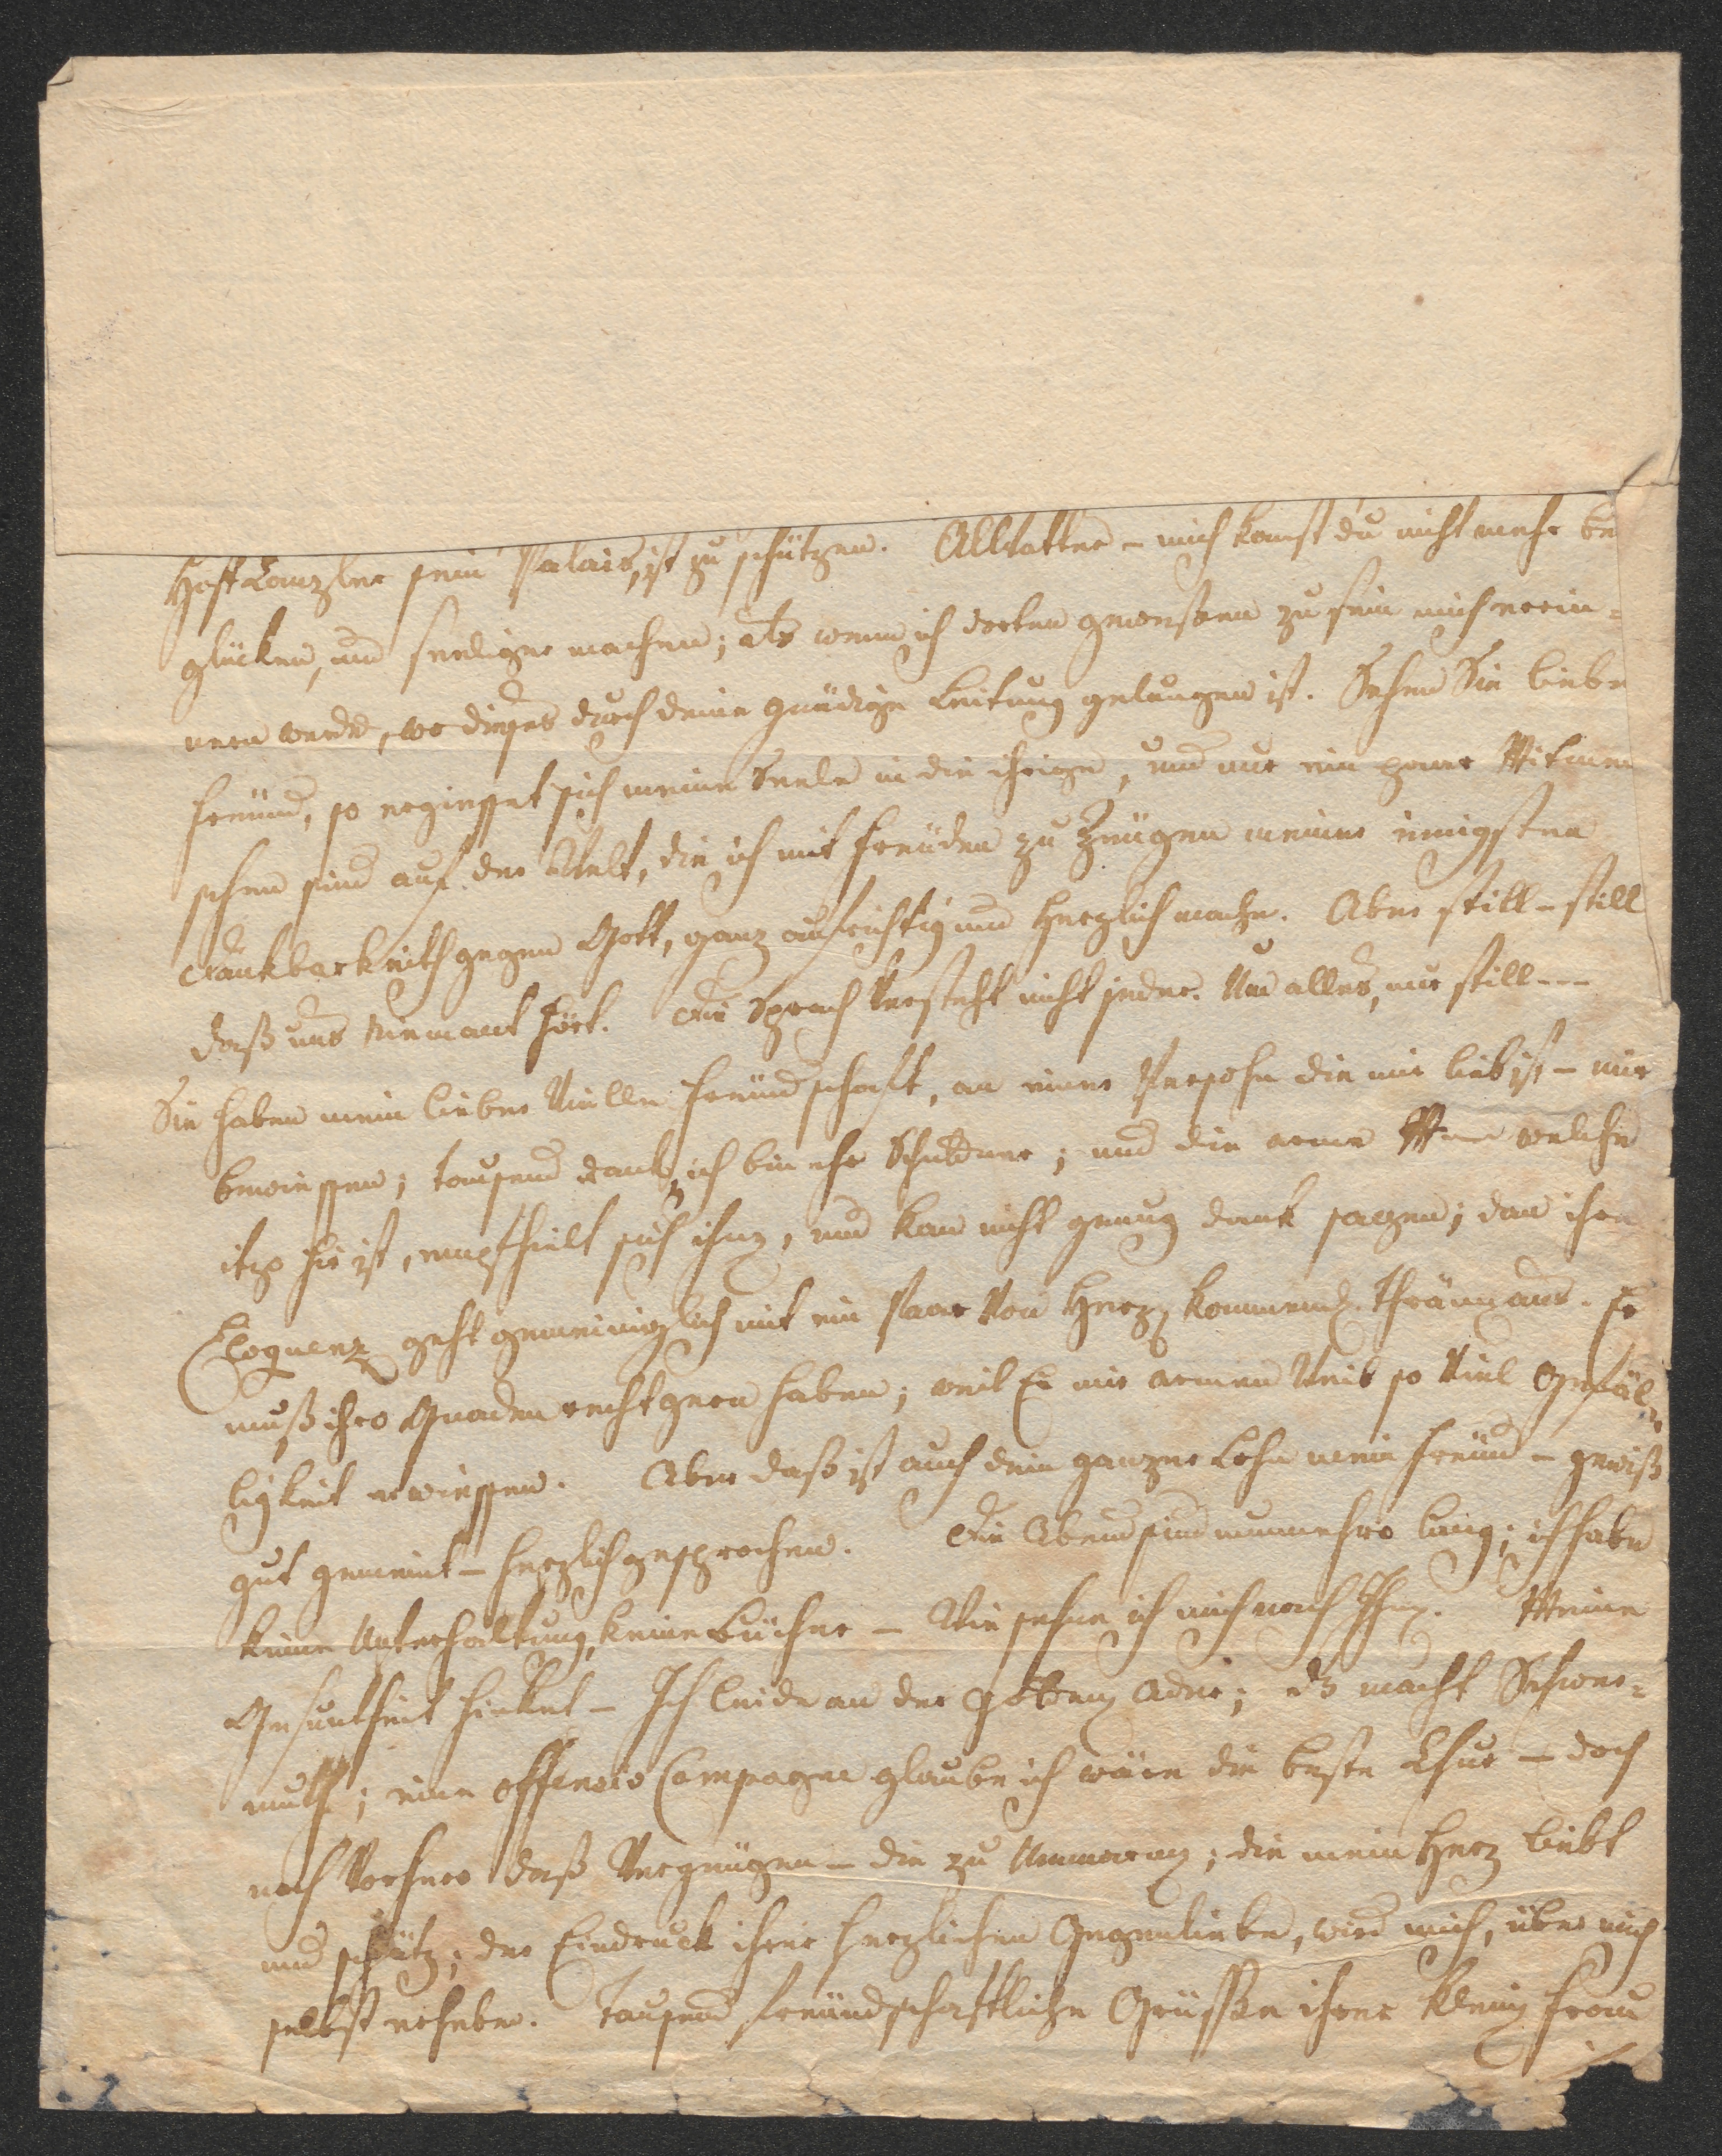 Hoff Canzler sein Palais, ist zu schützen. Allvatter – mich kanst du nicht mehr be
glücken, und seeliger machen; als wenn ich dorten gewessen zu sein mich erin=
nern werde, wo dieses durch deine gnädige Leitung gelungen ist. Sehen Sie liebe
Freund, so ergiesset sich meine Seele in die ihrige, und nur ein paar Mitmen
schen sind auf der Welt, die ich mit Freuden zu Zeugen meiner innigsten
Dankbarkeith gegen Gott, ganz aufrichtig und Herzlich mache. Aber still – still
daß uns Niemant hört. Die Sprach Versteht nicht jeder. Um alles, nur still ---
Sie haben mein lieber Vielle Freundschaft, an einer Persohn die mir lieb ist – mir
bewiessen; tausend Dank, ich bin ihr Schuldner; und die arme welche
itzo hir ist, empfhielt sich ihnen, und kan nicht genug dank sagen; dan ihre
Eloquenz geht gemeiniglich mit ein Paar Von Herzen kommende Thränen aus. Er
muß ihro Gnaden recht gern haben; weil Er mir armen Weib so Viel Gefäl=
ligkeit erwiessen. Aber daß ist auch dein ganzer Lohn mein Freund – gewiß
gut gemeint – herzlich gesprochen. Die Abend sind nunmehro lang; ich habe
keine Unterhaltung, keine Bücher – Wie sehne ich mich nach Ihnen. Meine
Gesuntheit hinket – Ich leide an der goldenen Ader; es macht Schwer=
muth; eine offensiv Campagne glaube ich wäre die beste Chur – doch
noch Vorhero daß Vergnügen – die zu Umarmen; die mein Herz liebt
und schätz; der Eindruck ihrer herzlichen Gegenliebe, wird mich, über mich
selbst erheben. Tausend freundschaftliche Grüssen ihrer kleinen Frau